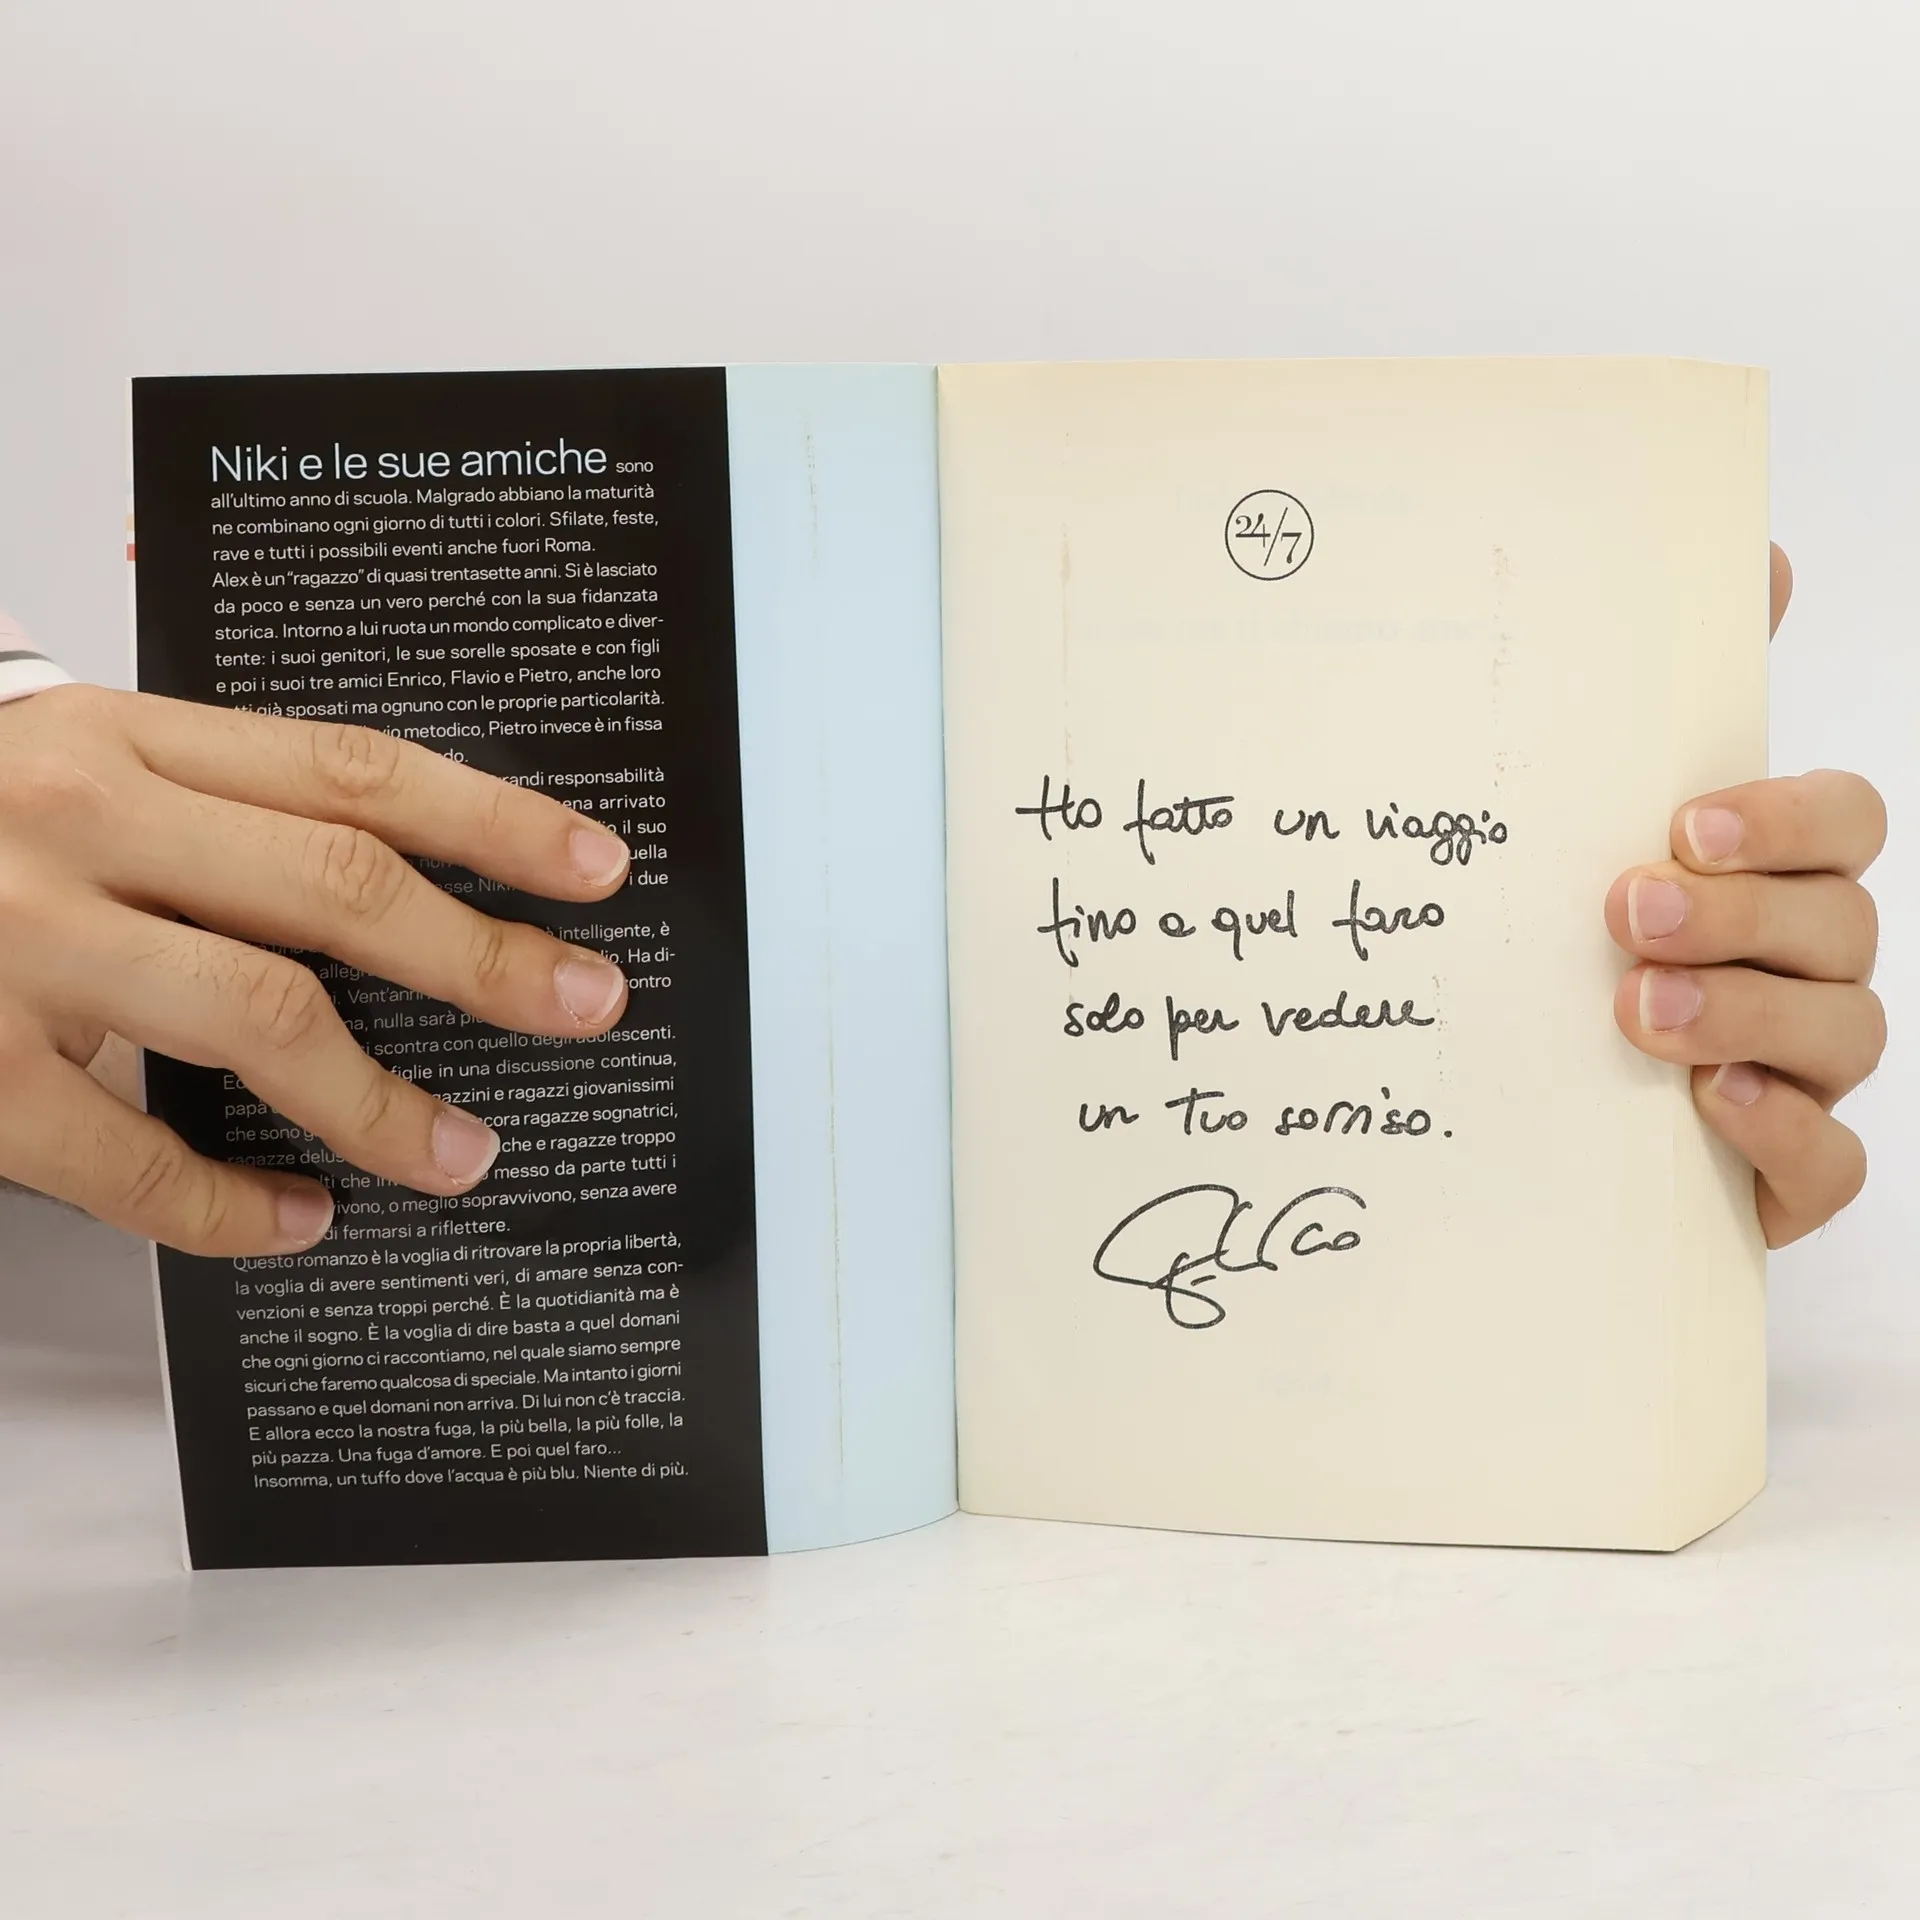 Niki e le sue amiche sono
all'ultimo anno di scuola. Malgrado abbiano la maturità
ne combinano ogni giorno di tutti i colori. Sfilate, feste,
rave e tutti i possibili eventi anche fuori Roma.
Alex è un "ragazzo" di quasi trentasette anni. Si è lasciato
da poco e senza un vero perché con la sua fidanzata
storica. Intorno a lui ruota un mondo complicato e diver-
tente: i suoi genitori, le sue sorelle sposate e con figli
e poi i suoi tre amici Enrico, Flavio e Pietro, anche loro
già sposati ma ognuno con le proprie particolarità.
metodico, Pietro invece è in fissa
responsabilità
arrivato
il suo
i due
intelligente, è
Ha di-
allegr
Vent'anni
nulla sarà
si scontra con quello degli adolescenti.
figlie in una discussione continua,
e ragazzi giovanissimi
papà
ragazze sognatrici,
che sono
che e ragazze troppo
ragazze
messo da parte tutti i
che
vivono, o meglio sopravvivono, senza avere
di fermarsi a riflettere.
Questo romanzo è la voglia di ritrovare la propria libertà,
la voglia di avere sentimenti veri, di amare senza con-
venzioni e senza troppi perché. È la quotidianità ma è
anche il sogno. È la voglia di dire basta a quel domani
che ogni giorno ci raccontiamo, nel quale siamo sempre
sicuri che faremo qualcosa di speciale. Ma intanto i giorni
passano e quel domani non arriva. Di lui non c'è traccia.
E allora ecco la nostra fuga, la più bella, la più folle, la
più pazza. Una fuga d'amore. E poi quel faro...
Insomma, un tuffo dove l'acqua è più blu. Niente di più.
24/7
Ho fatto un viaggio
fino a quel faro
solo per vedere
un tuo sorriso.